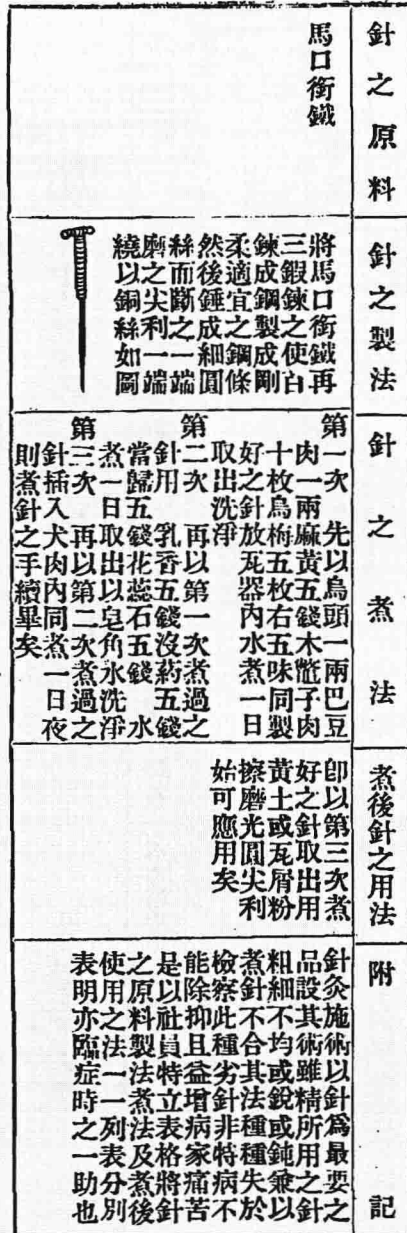 針之原料
馬口銜鐵
針之製法
將馬口銜鐵再
三鍜鍊之使白
鍊成鋼製成剛
柔適宜之鋼條
然後錘成細圓
絲而斷之一端
磨之尖利一端
繞以銅絲如圖
針之煮法
第一次 先以烏頭一兩巴豆
肉一兩麻黃五錢木鼈子肉
十枚烏梅五枚右五味同製
好之針放瓦器內水煮一日
取出洗淨
第二次 再以第一次煮過之
針用 乳香五錢沒葯五錢
當歸五錢花蕊石五錢 水
煮一日取出以皂角水洗淨
第三次 再以第二次煮過之
針插入犬肉內同煮一日夜
則煮針之手續畢矣
煮後針之用法
卽以第三次煮
好之針取出用
黃土或瓦屑粉
擦磨光圓尖利
始可應用矣
附記
針灸施術以針爲最要之
品設其術雖精所用之針
粗細不均或銳或鈍兼以
煮針不合其法種種失於
檢察此種劣針非特病不
能除抑且益增病家痛苦
是以社員特立表格將針
之原料製法煮法及煮後
使用之法一一列表分別
表明亦臨症時之一助也